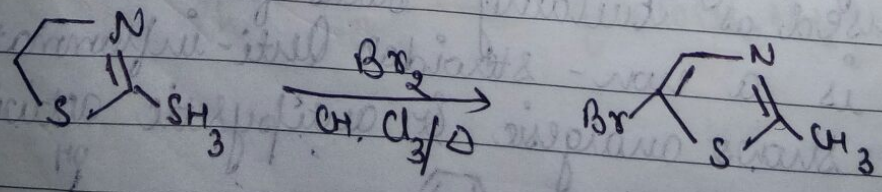 N
S
SH3
Br2
CH.Cl3/Δ
Br
N
S
CH3